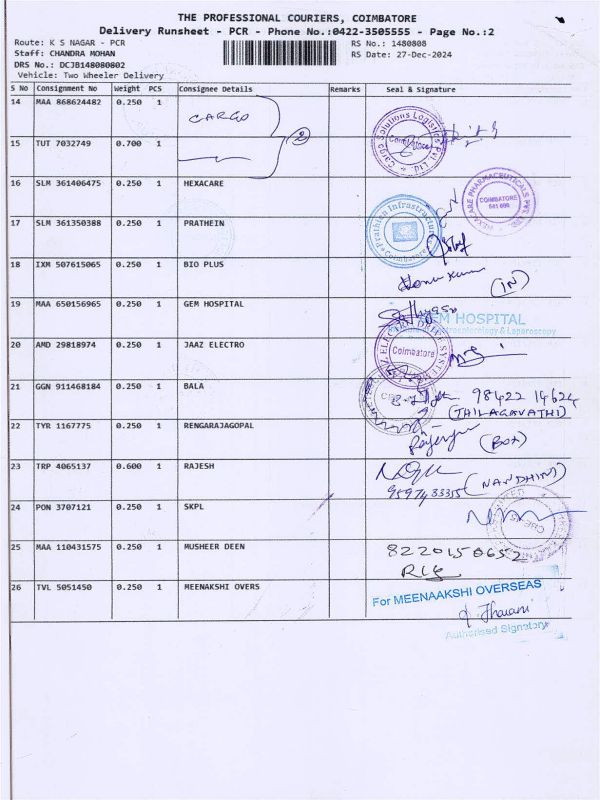 THE PROFESSIONAL COURIERS, COIMBATORE
Delivery Runsheet - PCR - Phone No.:0422-3505555 - Page No.:2
Route: K S NAGAR - PCR
RS No.: 1480808
Staff: CHANDRA MOHAN
RS Date: 27-Dec-2024
DRS No.: DCJB148080802
Vehicle: Two Wheeler Delivery
S No Consignment No Weight PCS Consignee Details Remarks Seal & Signature
14 MAA 868624482 0.250 1 CARGO
Cargo Solutions Logistics Pvt. Ltd. Coimbatore
15 TUT 7032749 0.700 1
16 SLM 361406475 0.250 1 HEXACARE
HEXACARE PHARMACEUTICALS PVT. COIMBATORE
17 SLM 361350388 0.250 1 PRATHEIN
Infrastructure Coimbatore
18 IXM 507615065 0.250 1 BIO PLUS (IN)
19 MAA 650156965 0.250 1 GEM HOSPITAL
GEM HOSPITAL
& Laparoscopy
20 AMD 29818974 0.250 1 JAAZ ELECTRO
Coimbatore
21 GGN 911468184 0.250 1 BALA 98422 14624
(THILAGAVATHI)
22 TYR 1167775 0.250 1 RENGARAJAGOPAL (BOX)
23 TRP 4065137 0.600 1 RAJESH (NANDHINI)
24 PON 3707121 0.250 1 SKPL
25 MAA 110431575 0.250 1 MUSHEER DEEN 8220150652
26 TVL 5051450 0.250 1 MEENAKSHI OVERS
For MEENAAKSHI OVERSEAS
Authorised Signatory